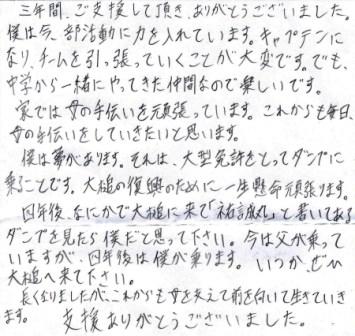 三年間、ご支援して頂き、ありがとうございました。
僕は今、部活動に力を入れています。キャプテンに
なり、チームを引っ張っていくことが大変です。でも、
中学から一緒にやってきた仲間なので楽しいです。
家では母の手伝いを頑張っています。これからも毎日、
母の手伝いをしていきたいと思います。
僕は夢があります。それは、大型免許をとってダンプに
乗ることです。大槌の復興のために一生懸命頑張ります。
四年後、なにかで大槌に来て「祐誠丸」と書いてある
ダンプを見たら僕だと思って下さい。今は父が乗って
いますが、四年後は僕が乗ります。いつか、ぜひ
大槌へ来て下さい。
長くなりましたが、これからも母を支えて前を向いて生きていき
ます。 支援ありがとうございました。